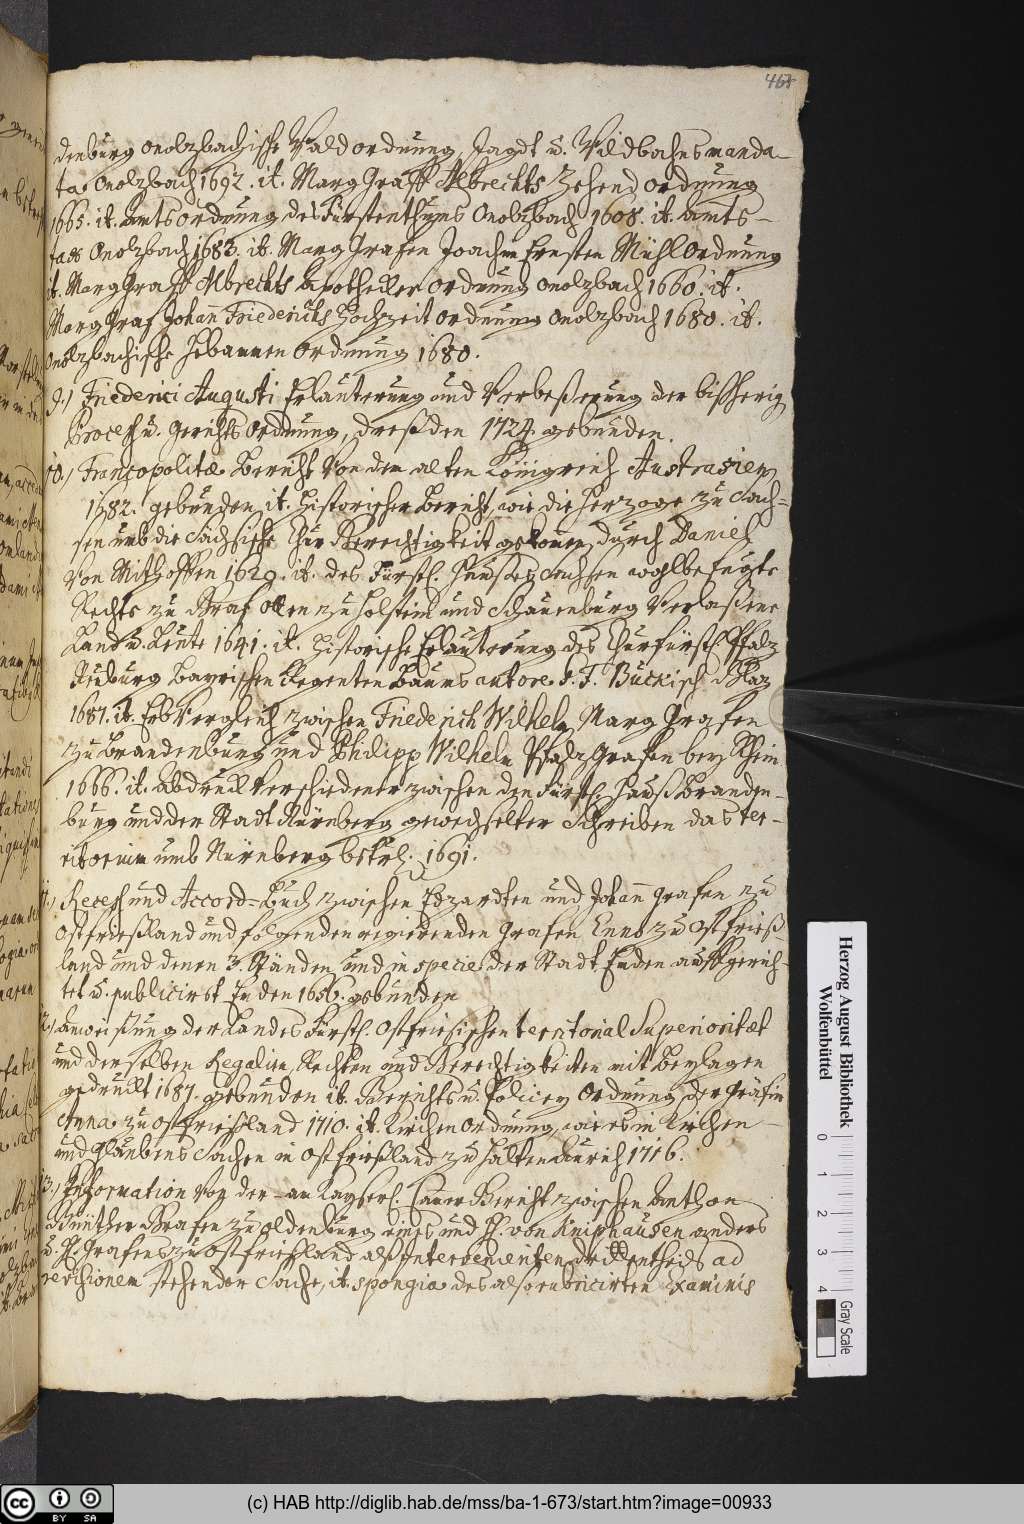 468
denburg onolzbachische Wald ordnung, Jagdt u. Wildbahns manda-
ta. Onolzbach 1692. it. Marg Graff Albrechts Zehend ordnung
1665. it. Amts ordnung des Fürstenthums Onolzbach 1608. it. Amts-
Onolzbach 1683. it. Marg Grafen Joachim Ernsten Mühl Ordnung
it. Marg Graff Albrechts Apothecker Ordnung onolzbach 1660. it.
Marg Graf Johan Friederichs Hochzeit ordnung Onolzbach 1680. it.
Onolzbachische Hebammen Ordnung 1680.
9.) Friederici Augusti Erläuterung und Verbeßerung der bißherig
Proceß u. Gerichts Ordnung, dreßden 1724. gebunden.
10.) Francopolitæ Bericht Von dem alten Königreich Austrasien
1682. gebunden it. Historischer Bericht, wie die Herzoge zu Sach-
sen umb die Sächsische Chur Gerechtigkeit gekommen, durch Daniel
Von Mithoffen 1629. it. des Fürstl. Haußes Sachsen wohlbefugte
Rechte zu Graf Otten zu Holstein und Schauenburg Verlaßene
Land u. Leute 1641. it. Historische Erläuterung des Churfürstl. Pfalz
Neuburg Bayrischen Regenten Baums autore. J. F. Buckisch
1687. it. Erb Vergleich zwischen Friederich Wilhelm Marg Grafen
zu Brandenburg und Philipp Wilhelm Pfalz Grafen bey Rhein
1666. it. Abdruck Verschiedener zwischen den Fürstl. Hauß Branden-
burg und der Stadt Nürnberg gewechselter Schreiben das ter-
ritorium umb Nürnberg betrl. 1691.
11.) Receß und Accord-Buch zwischen Edzardten und Johan Grafen zu
Ostfrießland und folgenden regierenden Grafen Enno zu Ostfrieß
land und denen 3. Ständen, und in specie der Stadt Emden auffgerich-
tet u. publicirt Emden 1656. gebunden
12.) Anweißung der Landes Fürstl. Ostfriesischen territorial Superioritæt
und derselben Regalien Rechten und Gerechtigkeiten mit Beylagen
gedruckt 1687. gebunden it. Gerichts u. Policey Ordnung der Gräfin
Anna zu Ostfrießland 1710. it. Kirchen Ordnung, wie es in Kirchen-
und Glaubens Sachen in Ostfrießland zu halten Aurich 1716.
13.) Information Von der - am Kayserl. Cammer Gericht zwischen Anthon
Günther Grafen zu Oldenburg eines und H. von Kniphausen anders
u. H. Grafens zu Ostfrießland als Intervenienten drittentheils ad
revisionem stehender Sache, it. spongia des also rubricirten Examinis
Herzog August Bibliothek
Wolfenbüttel
0 1 2 3 4
Gray Scale
cc BY SA
(c) HAB http://diglib.hab.de/mss/ba-1-673/start.htm?image=00933